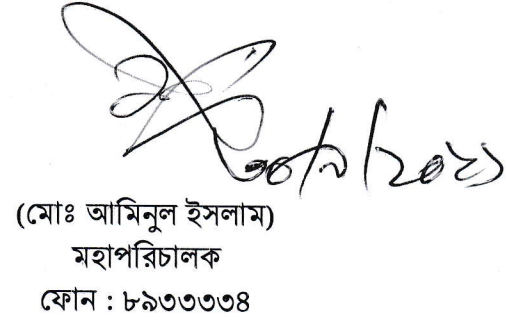 ৩০/৯/২০২১
(মোঃ আমিনুল ইসলাম)
মহাপরিচালক
ফোন : ৮৯৩৩৩৩৪